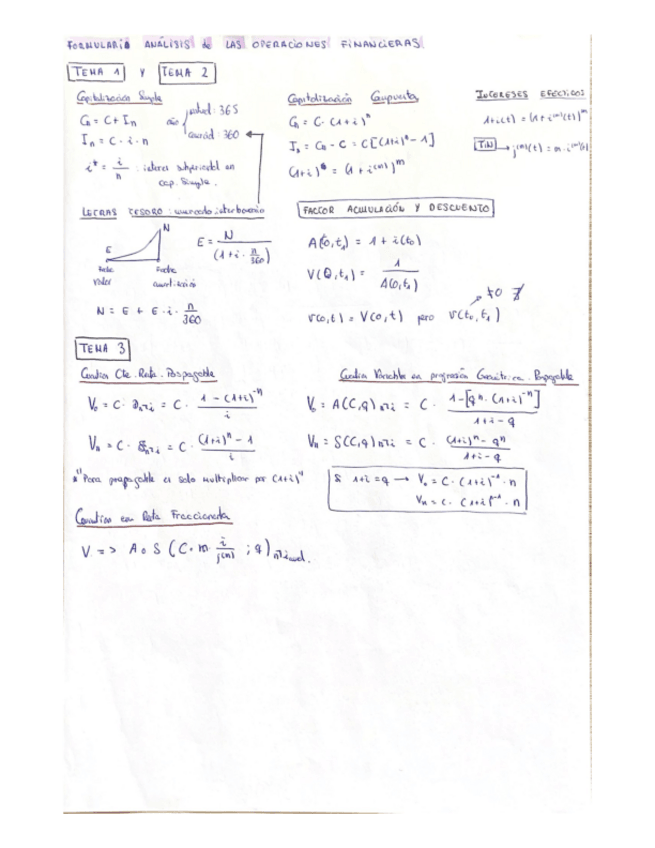 FORMULARIO ANÁLISIS de LAS OPERACIONES FINANCIERAS
TEMA 1 Y TEMA 2
Capitalización Simple
Cn = C + In
In = C · i · n
año
natural: 365
comercial: 360
i* = i/n : interes
cap. Simple.
Capitalización Compuesta
Cn = C · (1+i)^n
In = Cn - C = C[(1+i)^n - 1]
(1+i)^n = (1 + i^(m))^m
INTERESES EFECTIVOS
1+i(t) = (1 + i^(m)(t))^m
TIN → j^(m)(t) = m · i^(m)(t)
LETRAS TESORO : mercado interbancario
N
E
E = N / (1 + i · n/360)
Fecha valor
Fecha
N = E + E · i · n/360
FACTOR ACUMULACIÓN Y DESCUENTO
A(0,t1) = 1 + i(t0)
V(0,t1) = 1 / A(0,t1)
V(0,t) = V(0,t) pero V(t0,t1)
TEMA 3
Cuantías Cte. Renta. Pospagable
V0 = C · a n¬i = C · (1 - (1+i)^-n) / i
Vn = C · S n¬i = C · ((1+i)^n - 1) / i
Para prepagable es solo multiplicar por (1+i)^1
Cuantías Variables en progresión Geométrica. Pospagable
V0 = A(C,q) n¬i = C · (1 - [q^n · (1+i)^-n]) / (1+i-q)
Vn = S(C,q) n¬i = C · ((1+i)^n - q^n) / (1+i-q)
Si 1+i = q → V0 = C · (1+i)^-1 · n
Vn = C · (1+i)^n-1 · n
Cuantías en Renta Fraccionada
V => A o S (C · m · i/j(m) ; q) n¬i